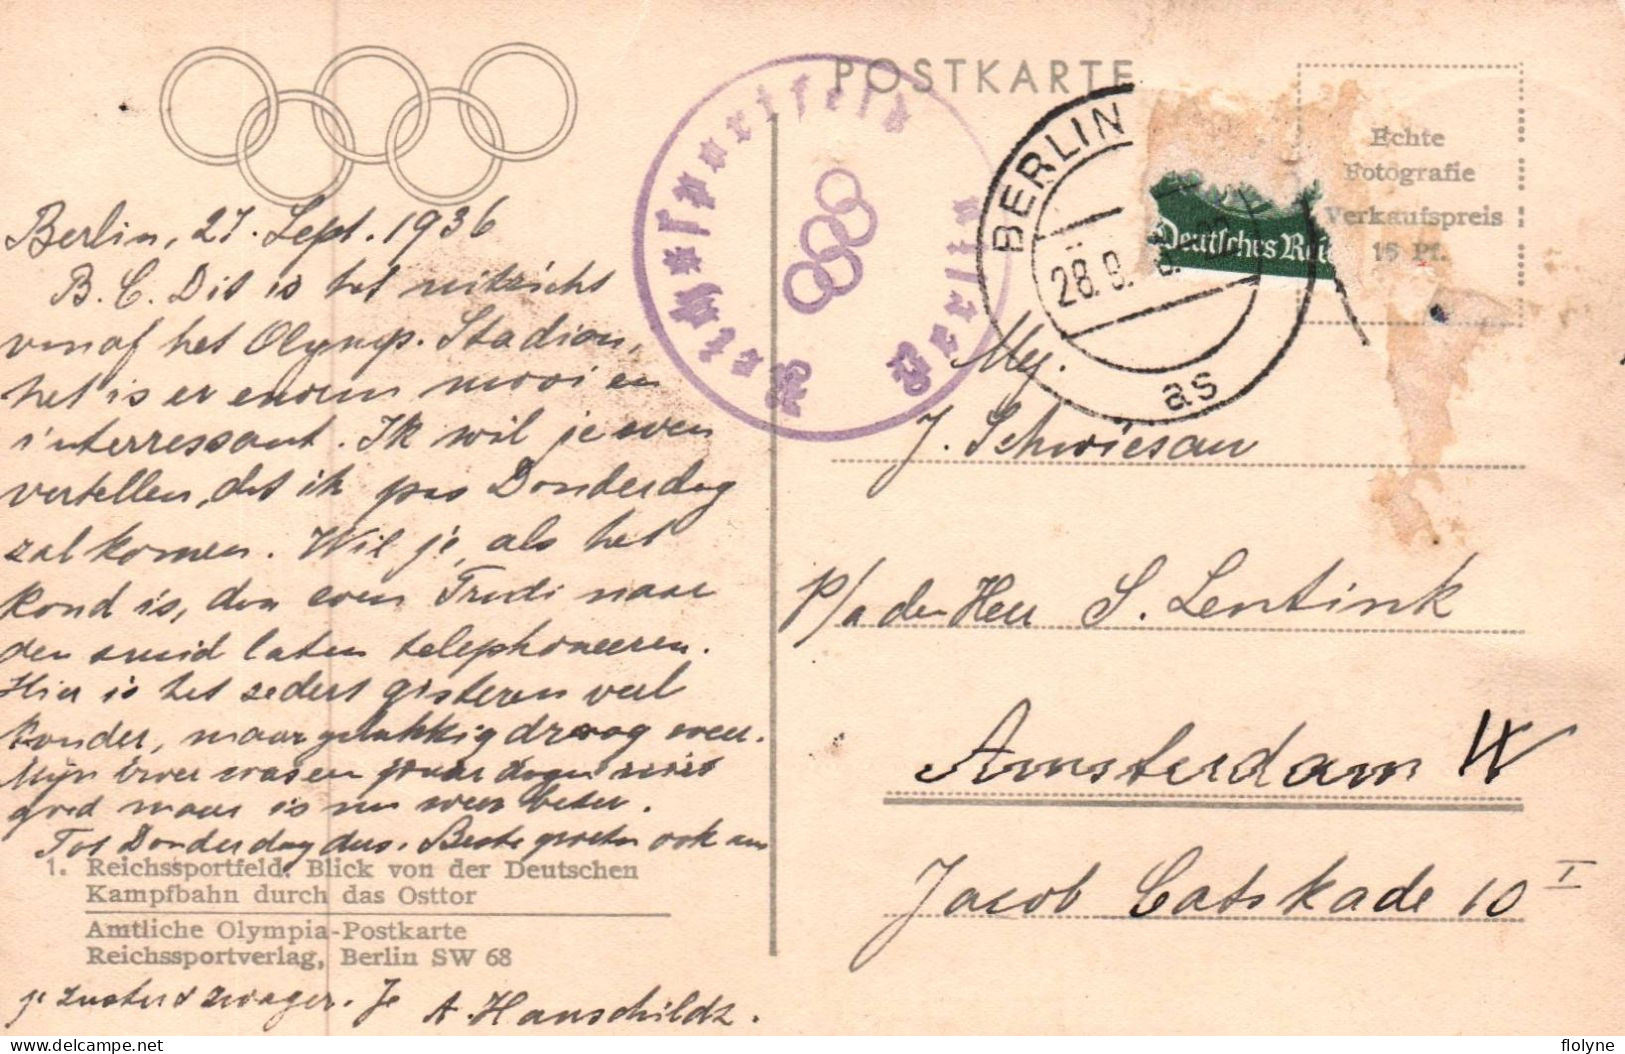 POSTKARTE
Echte
Fotografie
Verkaufspreis
15 Pf.
Deutsches Reich
BERLIN
28. 9.
as
Reichssportfeld
Berlin
Berlin, 27. Sept. 1936
B. C. Dit is het uitzicht
vanaf het Olymp. Stadion,
het is er enorm mooi en
interressant. Ik wil je even
vertellen, dat ik pas Donderdag
zal komen. Wil je, als het
kond is, dan even Trudi naar
den smid laten telephoneeren.
Hier is het sedert gisteren veel
kouder, maar gelukkig droog weer.
Mijn waren paar dagen niet
goed maar is nu weer beter.
Tot Donderdag dus. Beste groeten ook aan
je zuster & zwager. Je A. Hanschildt.
1. Reichssportfeld. Blick von der Deutschen
Kampfbahn durch das Osttor
Amtliche Olympia-Postkarte
Reichssportverlag, Berlin SW 68
Mej.
J. Schwiesau
p/a den Heer S. Lentink
Amsterdam W
Jacob Catskade 10 I
flolyne